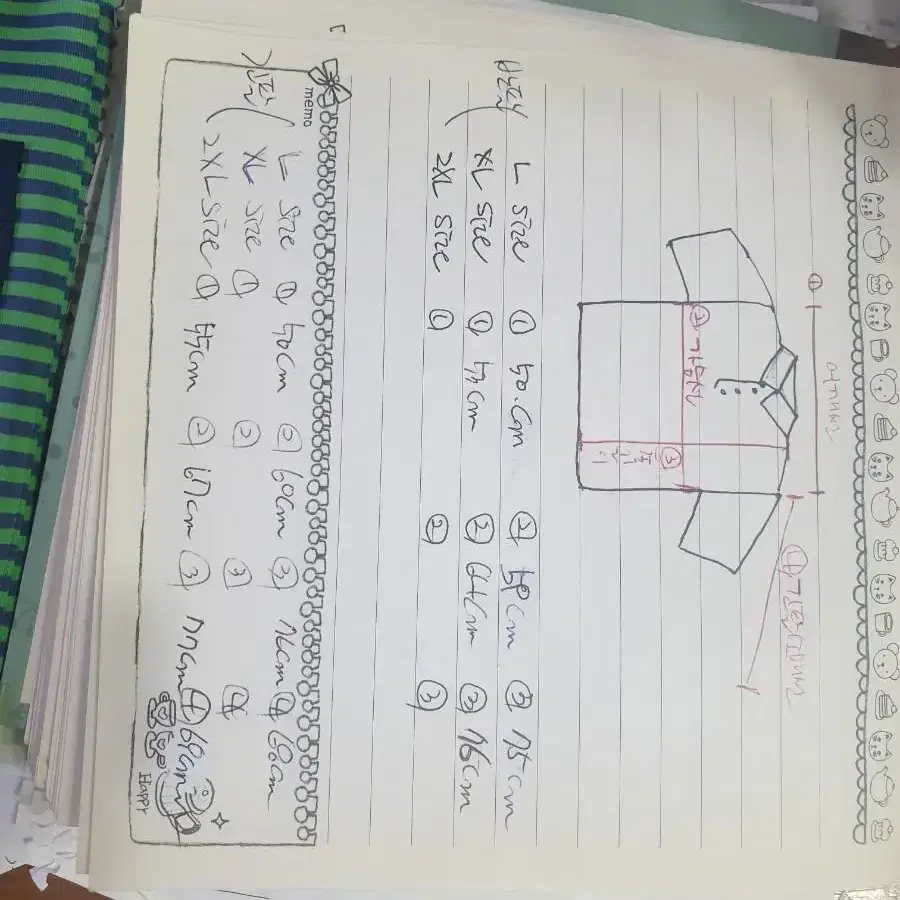 ① 어깨너비
② 가슴
③
④ 긴팔
반팔( L size ① 50.cm ② 59cm ③ 75cm
XL size ① 53cm ② 64cm ③ 76cm
2XL size ① ② ③
memo
긴팔( L size ① 50cm ② 60cm ③ 76cm ④ 68cm
XL size ① ② ③ ④
2XL size ① 55cm ② 67cm ③ 77cm ④ 69cm
Happy